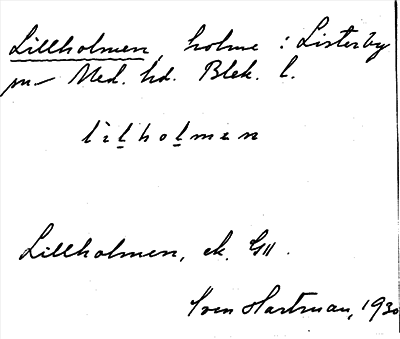 Lillholmen, holme : Listerby
sn Med. hd. Blek. l.
lilholmen
Lillholmen, ek. G11.
Sven Hartman, 1930